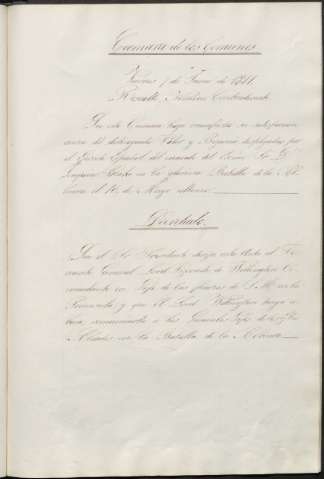 Camara de los Comunes
Viernes 7 de Junio de 1811.
Resuelto Nemine Contradicente
Que esta Camara haga manifiesta su satisfaccion
acerca del distinguido Valor y Bizarria desplegados por
el Ejercito Español del mando del Exmo. Sr. Dn.
Joaquin Blake en la gloriosa Batalla de la Al-
buera el 16 de Mayo ultimo
Decretado.
Que el Sr. Presidente dirija esta Acta al Te-
niente General Lord Vizconde de Wellington Co-
mandante en Jefe de las fuerzas de S. M. en la
Peninsula y que el Lord Wellington haga
comunicarla a los Generales Jefes de las
Aliados en la Batalla de la Albuera